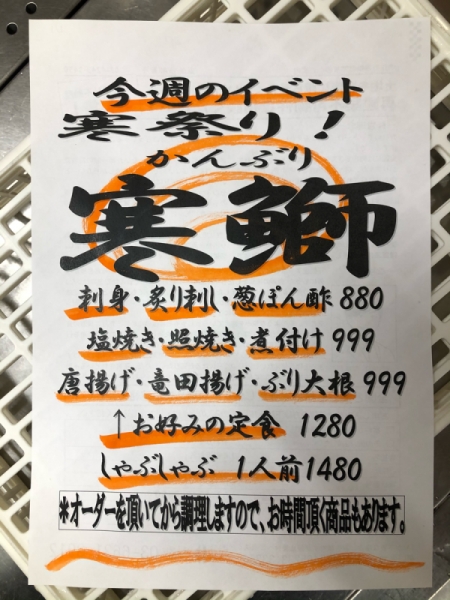 今週のイベント
寒祭り！
かんぶり
寒鰤
刺身・炙り刺し・葱ぽん酢 880
塩焼き・照焼き・煮付け 999
唐揚げ・竜田揚げ・ぶり大根 999
↑お好みの定食 1280
しゃぶしゃぶ 1人前1480
＊オーダーを頂いてから調理しますので、お時間頂く商品もあります。